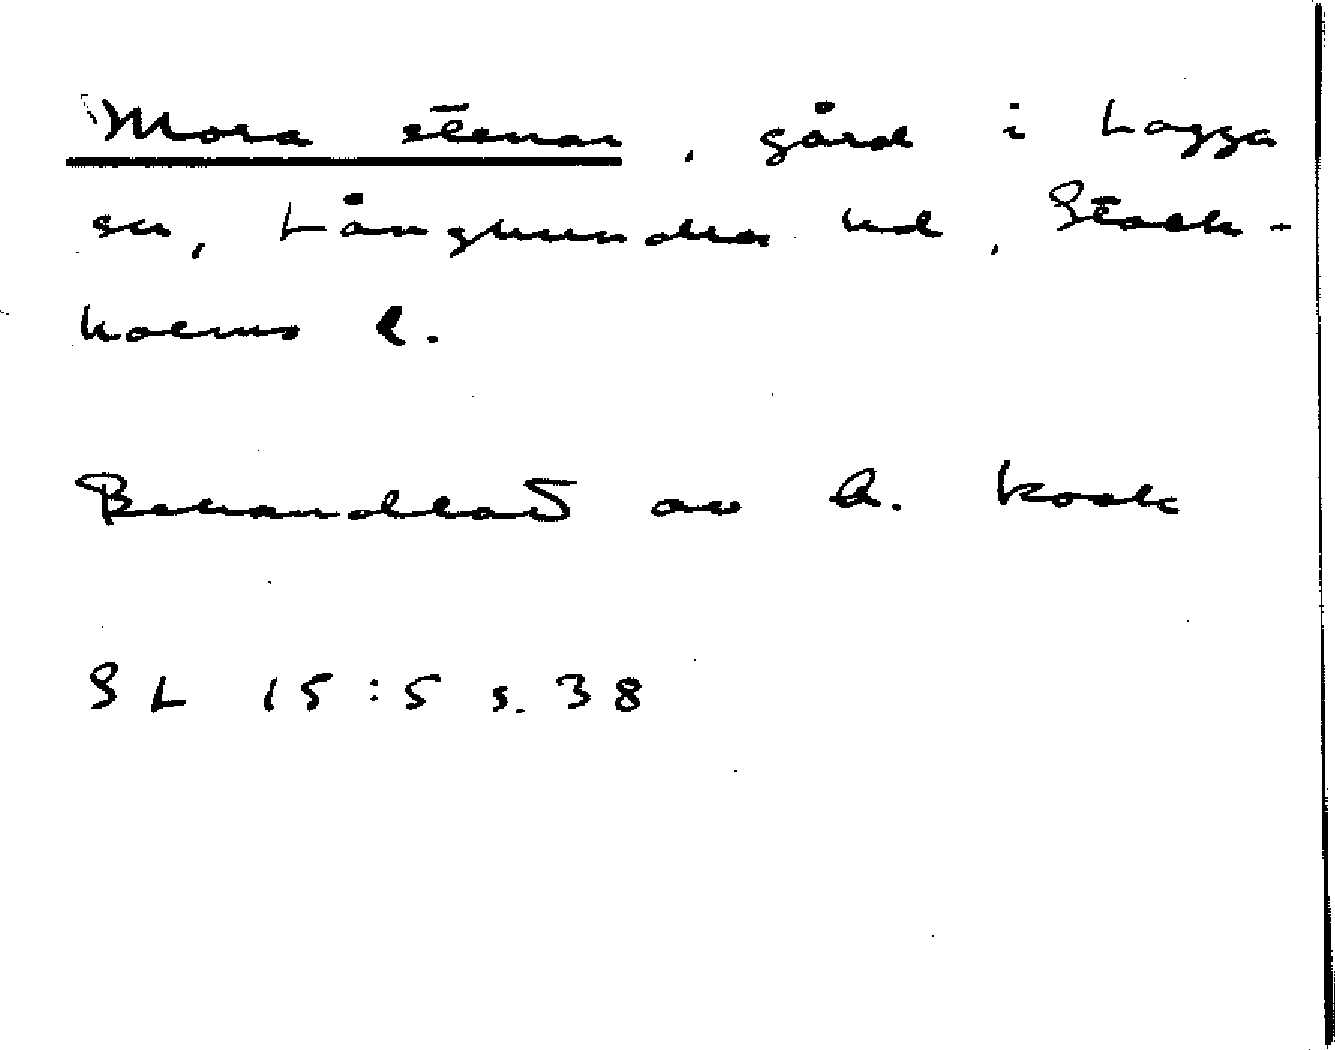 Mora stenar, gård i Lagga
sn, Långhundra hd, Stock-
holms l.
Behandlat av A. Kock
SL 15:5 s. 38